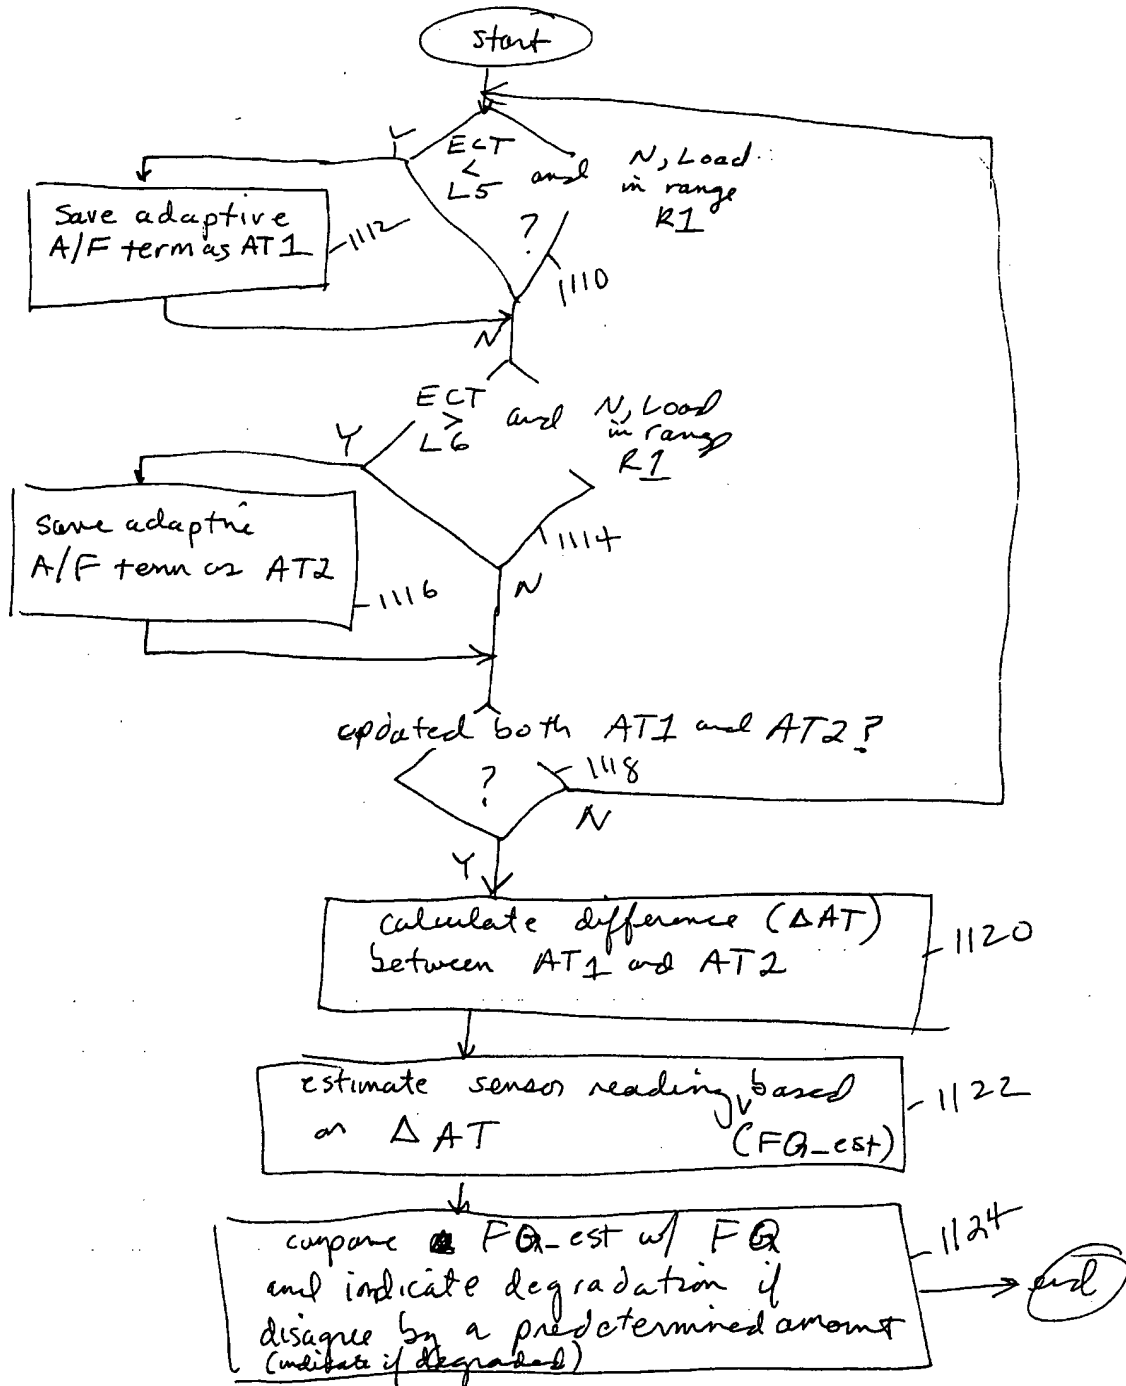 start
Y
ECT
<
L5
and
N, Load
in range
R1
?
1110
Save adaptive
A/F term as AT1
1112
N
ECT
>
L6
and
N, Load
in range
R1
Y
1114
save adaptive
A/F term as AT2
1116
N
updated both AT1 and AT2?
?
1118
N
Y
calculate difference (ΔAT)
between AT1 and AT2
1120
estimate sensor reading based
on ΔAT
(FQ_est)
1122
compare FQ_est w/ FQ
and indicate degradation if
disagree by a predetermined amount
(indicate if degraded)
1124
end